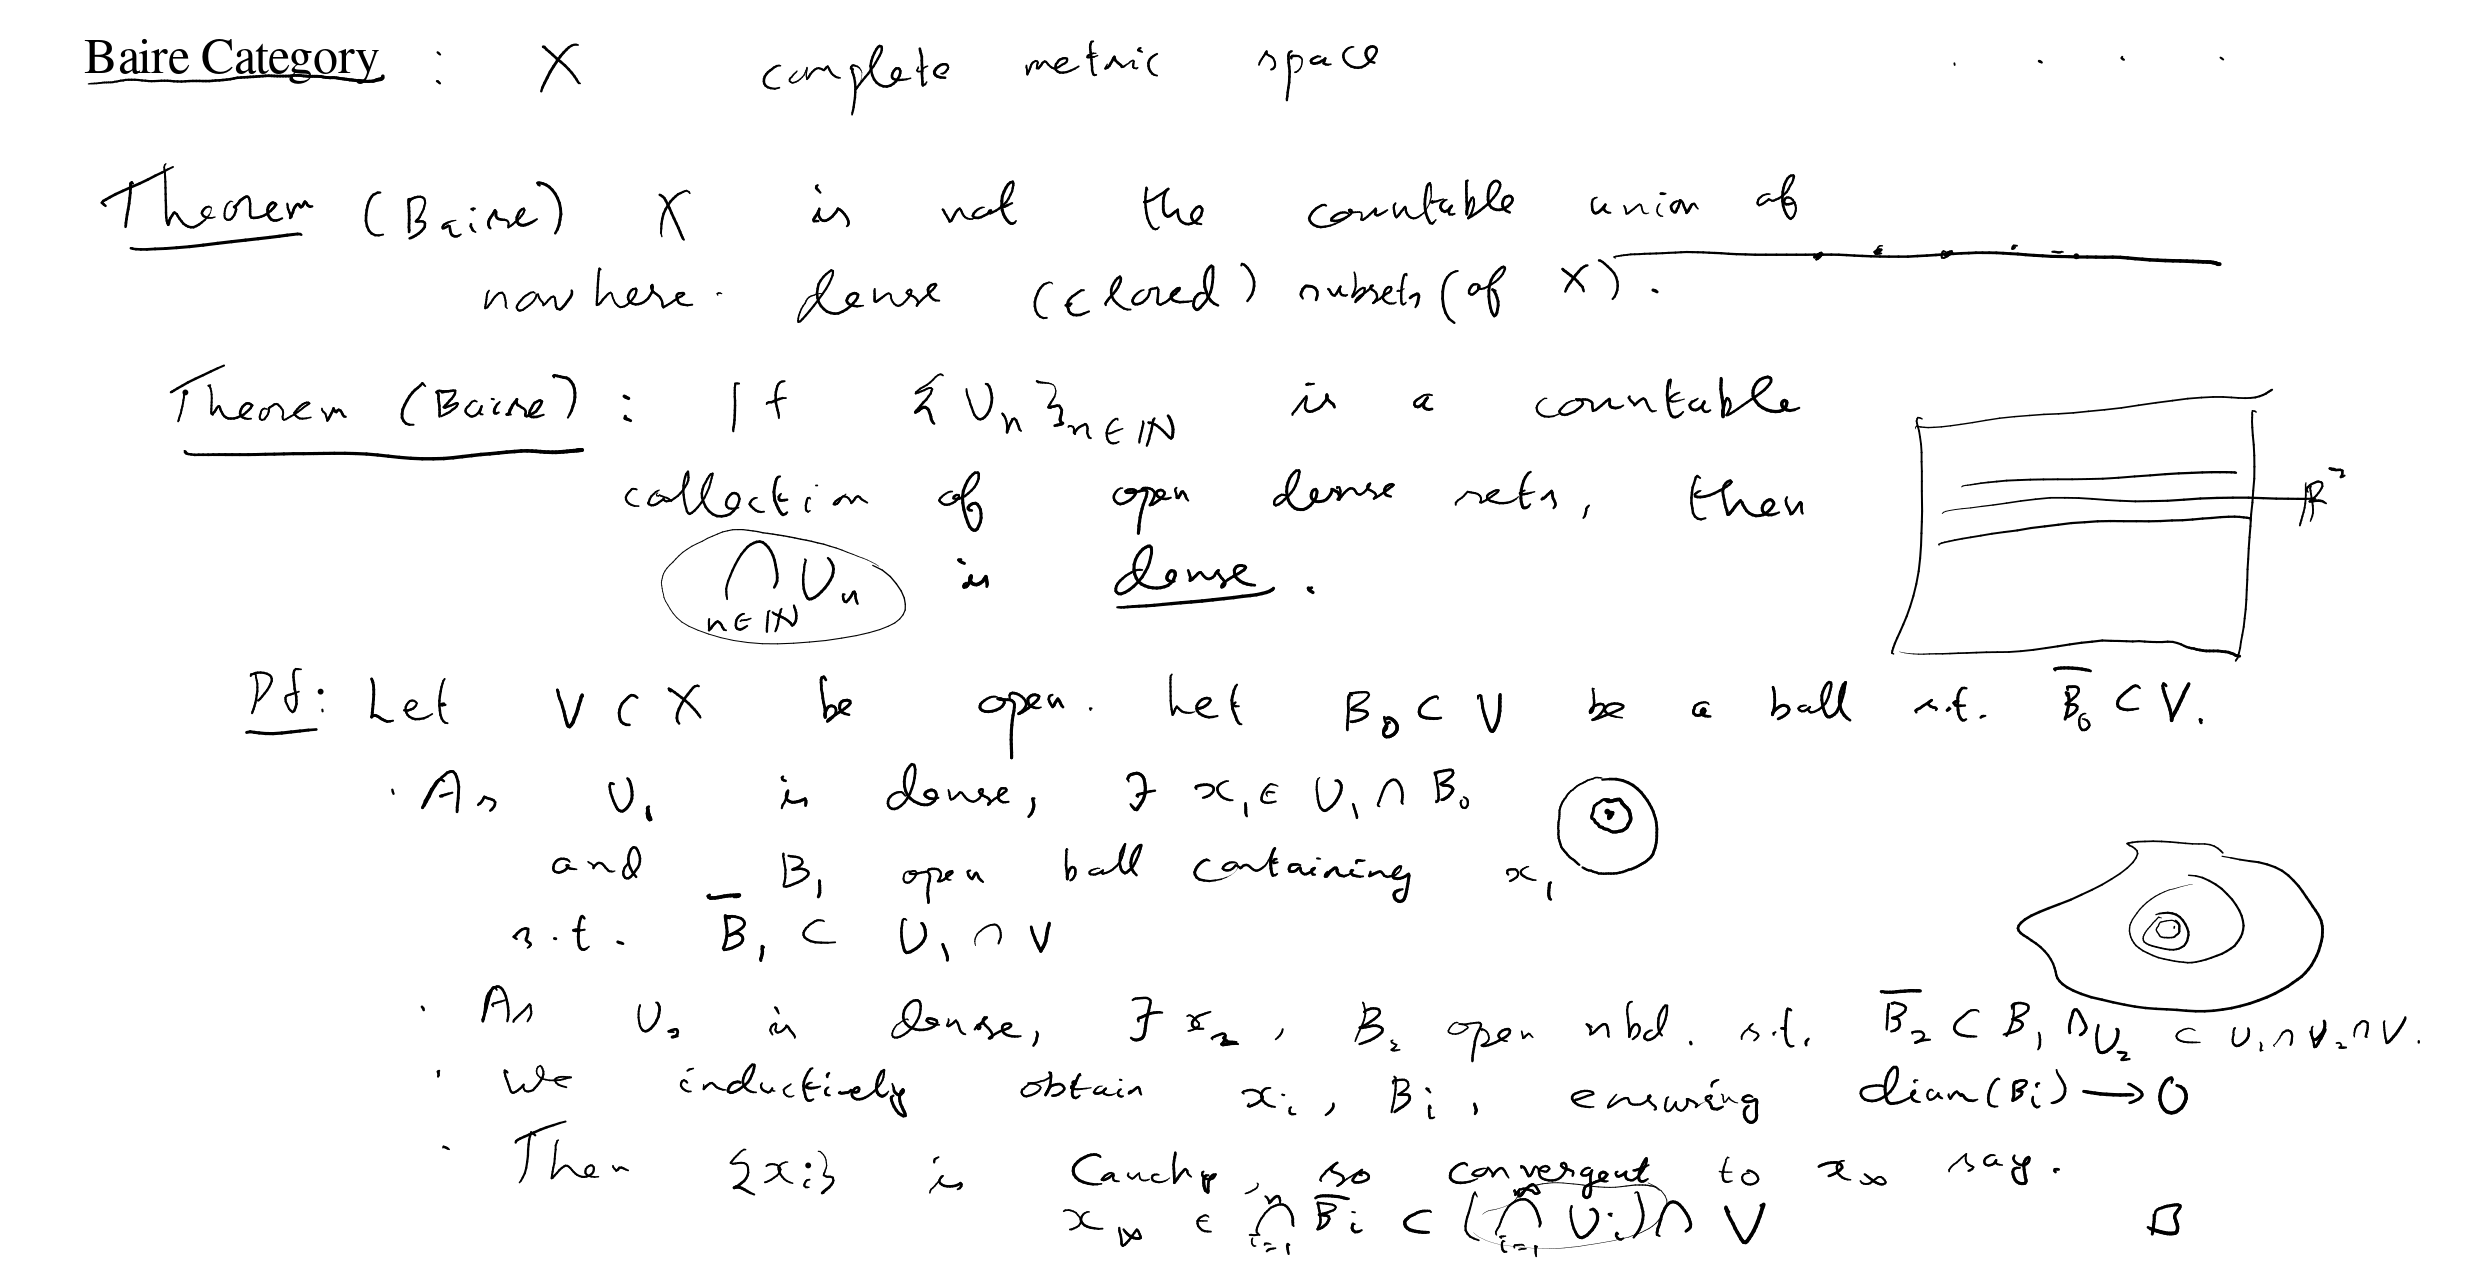 Baire Category : X complete metric space
Theorem (Baire) X is not the countable union of
nowhere dense (closed) subsets (of X).
Theorem (Baire) : If {Uₙ}ₙ∈ℕ is a countable
collection of open dense sets, then
ℝ²
⋂ₙ∈ℕ Uₙ is dense.
Pf: Let V ⊂ X be open. Let B₀ ⊂ V be a ball s.t. B̅₀ ⊂ V.
· As U₁ is dense, ∃ x₁ ∈ U₁ ∩ B₀
and B₁ open ball containing x₁
s.t. B̅₁ ⊂ U₁ ∩ V
· As U₂ is dense, ∃ x₂, B₂ open nbd. s.t. B̅₂ ⊂ B₁ ∩ U₂ ⊂ U₁ ∩ U₂ ∩ V.
· We inductively obtain xᵢ, Bᵢ, ensuring diam(Bᵢ) → 0
· Then {xᵢ} is Cauchy, so convergent to x∞ say.
x∞ ∈ ⋂ᵢ₌₁ⁿ B̅ᵢ ⊂ (⋂ᵢ₌₁^∞ Uᵢ) ∩ V □